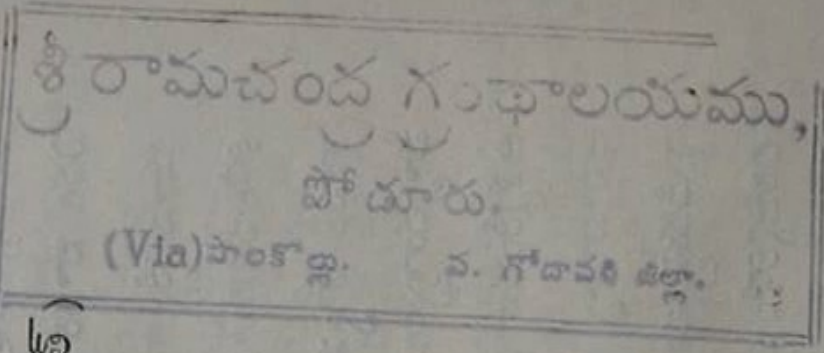 శ్రీ రామచంద్ర గ్రంథాలయము,
పోడూరు.
(Via)పాలకొల్లు. ప. గోదావరి జిల్లా.